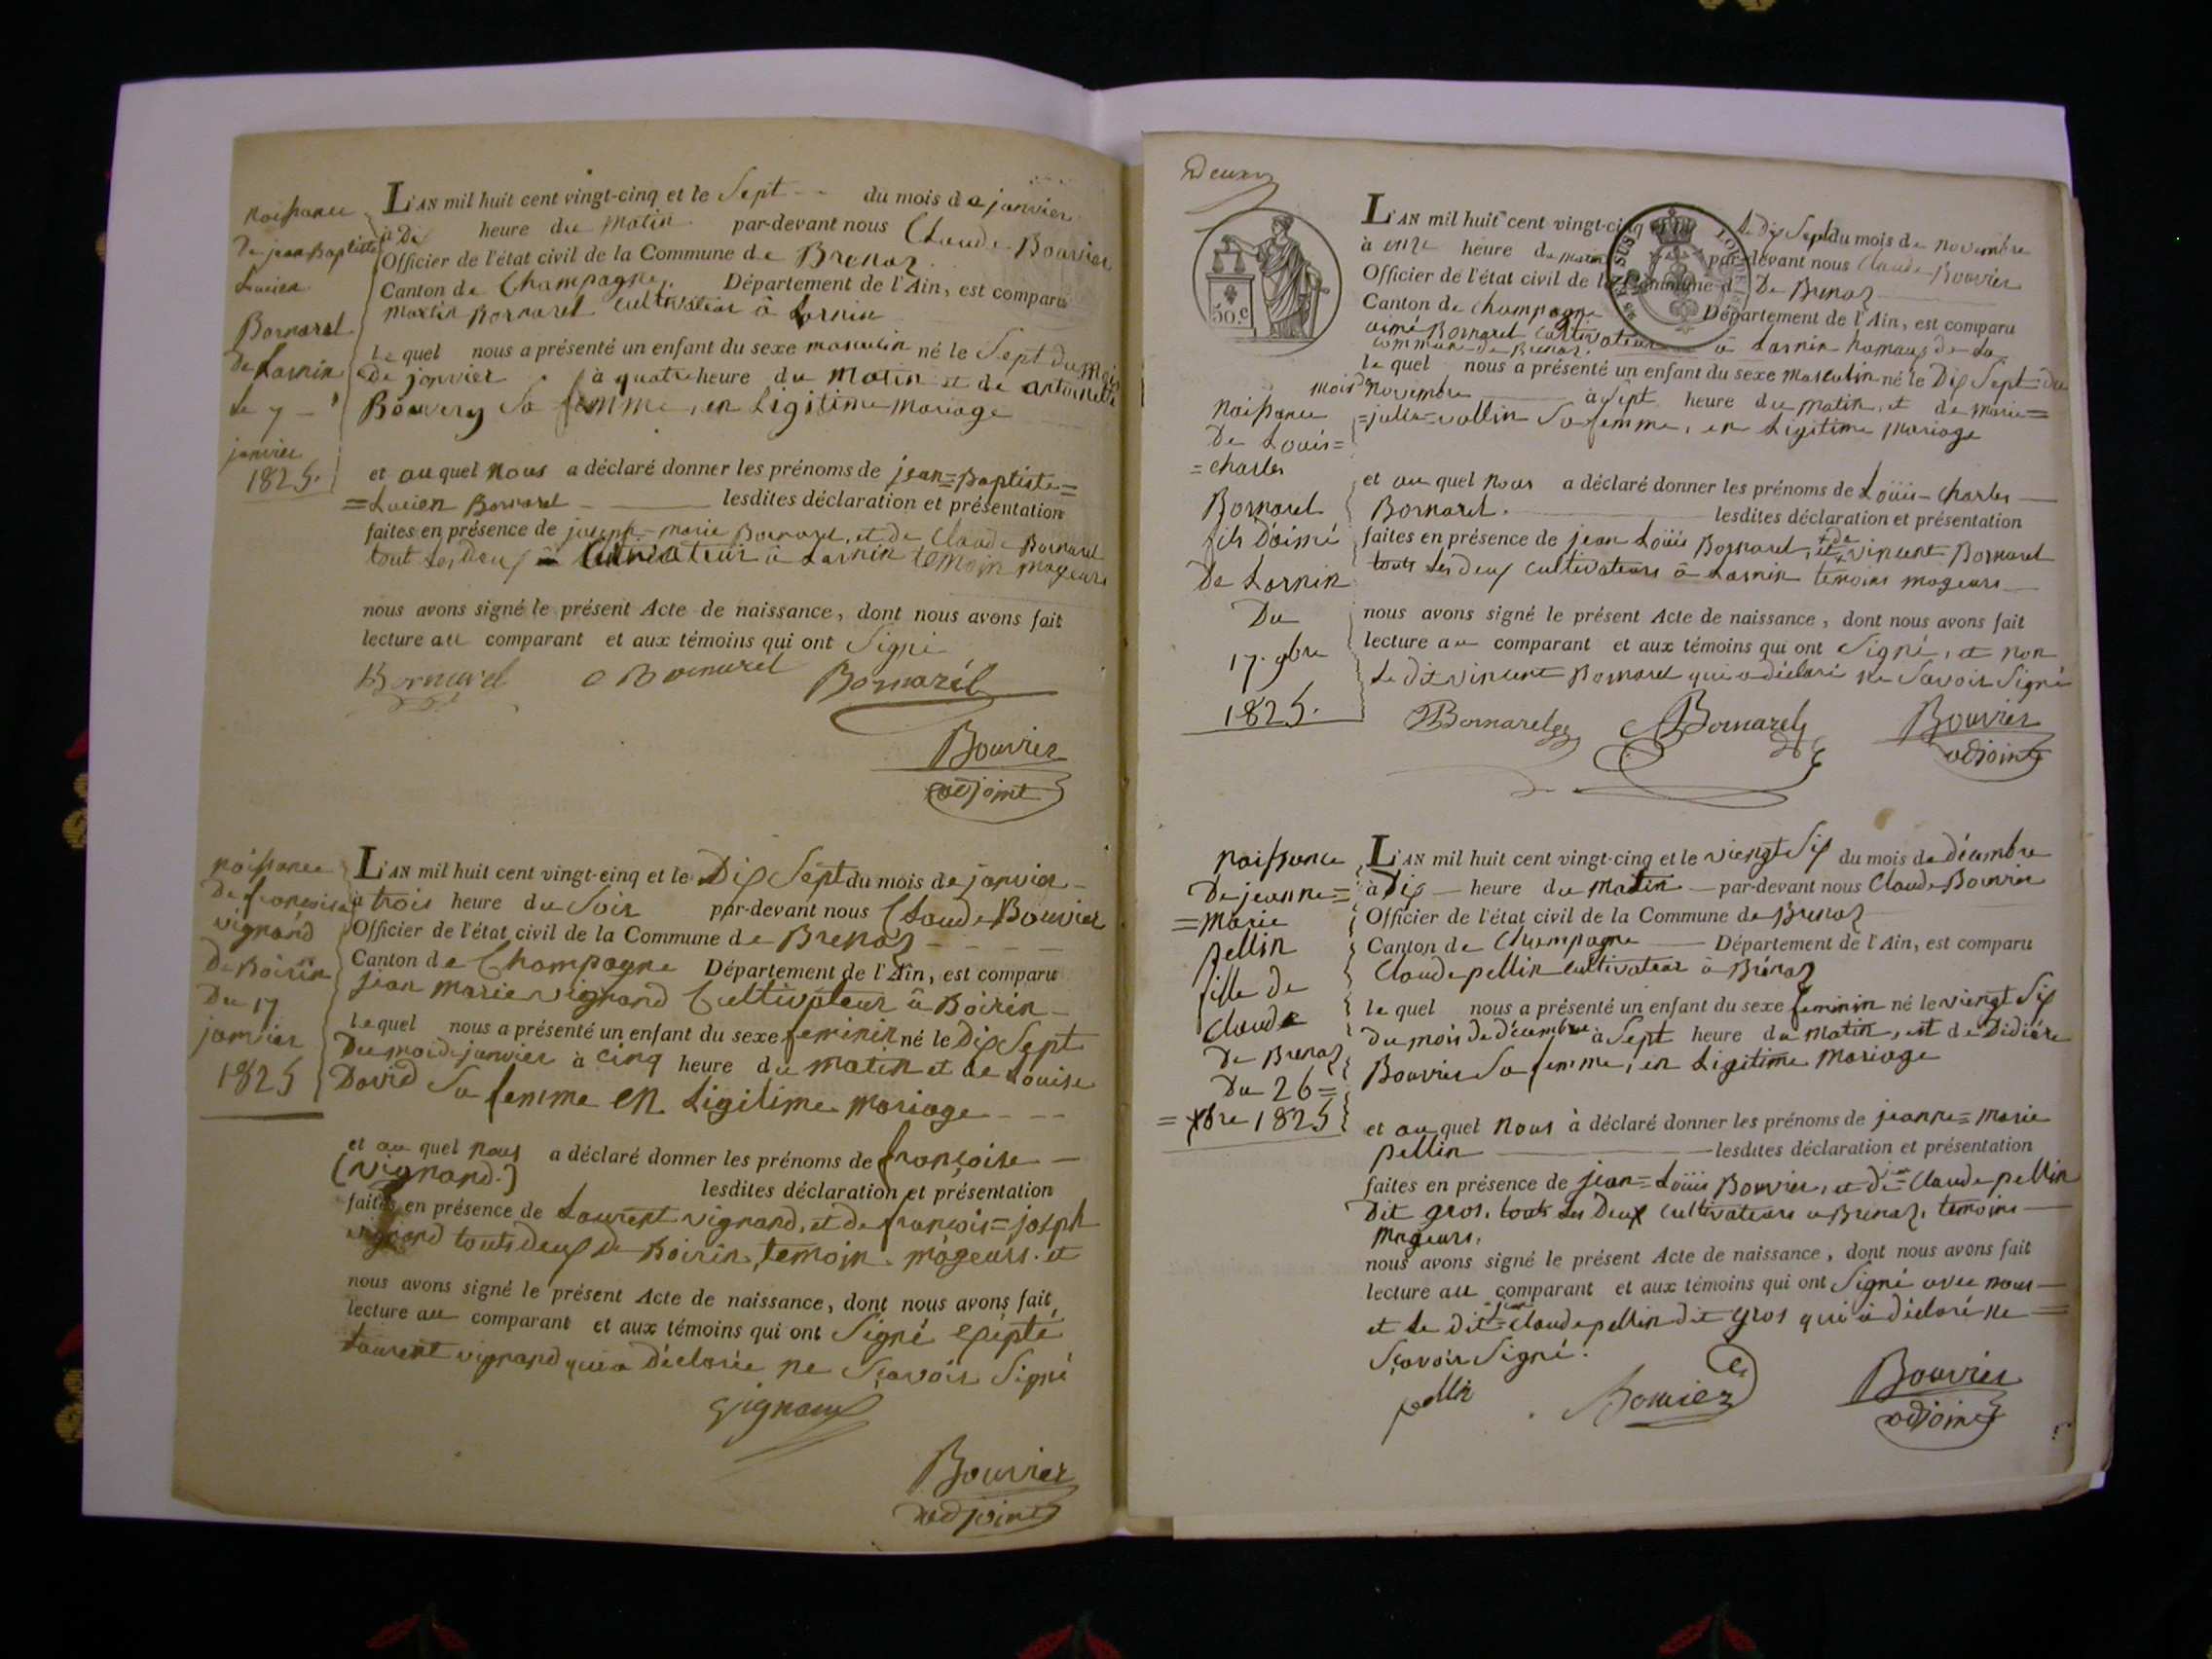 naissance
de jean Baptiste
Lucien
Bornarel
de Larnin
le 7
janvier
1825.
L'AN mil huit cent vingt-cinq et le Sept du mois de janvier
à Dix heure du Matin par-devant nous Claude Bouvier
Officier de l'état civil de la Commune de Brenaz
Canton de Champagne, Département de l'Ain, est comparu
Martin Bornarel cultivateur à Larnin
le quel nous a présenté un enfant du sexe masculin né le Sept du mois
de janvier à quatre heure du Matin et de antoinette
Bouvery sa femme, en Ligitime mariage
et au quel nous a déclaré donner les prénoms de jean=Baptiste=
=Lucien Bornarel lesdites déclaration et présentation
faites en présence de joseph-marie Bornarel, et de Claude Bornarel
tout les deux Cultivateur à Larnin temoin mageurs
nous avons signé le présent Acte de naissance, dont nous avons fait
lecture au comparant et aux témoins qui ont Signé
Bornarel C Bornarel Bornarel
Bouvier
adjoint
naissance
de françoise
vignand
De Boirin
Du 17
janvier
1825
L'AN mil huit cent vingt-cinq et le Dix Sept du mois de janvier
à trois heure du Soir par-devant nous Claude Bouvier
Officier de l'état civil de la Commune de Brenaz
Canton de Champagne Département de l'Ain, est comparu
jean marie vignand Cultivateur à Boirin
le quel nous a présenté un enfant du sexe feminin né le Dix Sept
Du moi de janvier à cinq heure du matin et de Louise
David sa femme en Ligitime mariage
et au quel nous a déclaré donner les prénoms de françoise
(vignand.) lesdites déclaration et présentation
faites en présence de Laurent vignand, et de françois=joseph
vignand touts deux de Boirin, temoin mageurs. et
nous avons signé le présent Acte de naissance, dont nous avons fait
lecture au comparant et aux témoins qui ont Signé exépté
Laurent vignand qui a déclarée ne Sçavoir Signé
Vignand
Bouvier
adjoint
Deux
50.c
L'AN mil huit cent vingt-cinq et le dix Sept du mois de novembre
à onze heure du matin par-devant nous Claude Bouvier
Officier de l'état civil de la Commune d De Brenaz
Canton de Champagne Département de l'Ain, est comparu
aimé Bornarel cultivateur à Larnin hamaux de la
commune de Brenaz.
le quel nous a présenté un enfant du sexe masculin né le Dix Sept du
mois de novembre à Sept heure du matin, et de marie=
=julie=vallin sa femme, en Ligitime mariage
naissance
De Louis=
=charles
Bornarel
fils d'aimé
De Larnin
Du
17. 9bre
1825.
et au quel nous a déclaré donner les prénoms de Loüis-charles
Bornarel. lesdites déclaration et présentation
faites en présence de jean Loüis Bornarel, et de vincent Bornarel
touts les deux cultivateurs à Larnin temoins mageurs
nous avons signé le présent Acte de naissance, dont nous avons fait
lecture au comparant et aux témoins qui ont Signé, et non
le dit vincent Bornarel qui a déclaré ne Savoir Signé
Bornarel Bornarel Bouvier
adjoint
naissance
De jeanne=
=marie
pellin
fille de
claude
De Brenaz
Du 26=
=xbre 1825
L'AN mil huit cent vingt-cinq et le viengt Six du mois de décembre
à Dix heure du Matin par-devant nous Claude Bouvier
Officier de l'état civil de la Commune de Brenaz
Canton de Champagne Département de l'Ain, est comparu
Claude pellin cultivateur à Brénaz
le quel nous a présenté un enfant du sexe feminin né le viengt Six
du mois de décembre à Sept heure du matin, et de Didiére
Bouvier sa femme, en Ligitime Mariage
et au quel nous à déclaré donner les prénoms de jeanne=marie
pellin lesdites déclaration et présentation
faites en présence de jean=Loüis Bouvier, et de jean Claude pellin
Dit gros. touts les Deux cultivateurs a Brenaz, temoins
mageurs,
nous avons signé le présent Acte de naissance, dont nous avons fait
lecture au comparant et aux témoins qui ont Signé avec nous
et le dit jean Claude pellin dit gros qui à déclaré ne
Sçavoir Signé.
pellin Bouvier Bouvier
adjoint